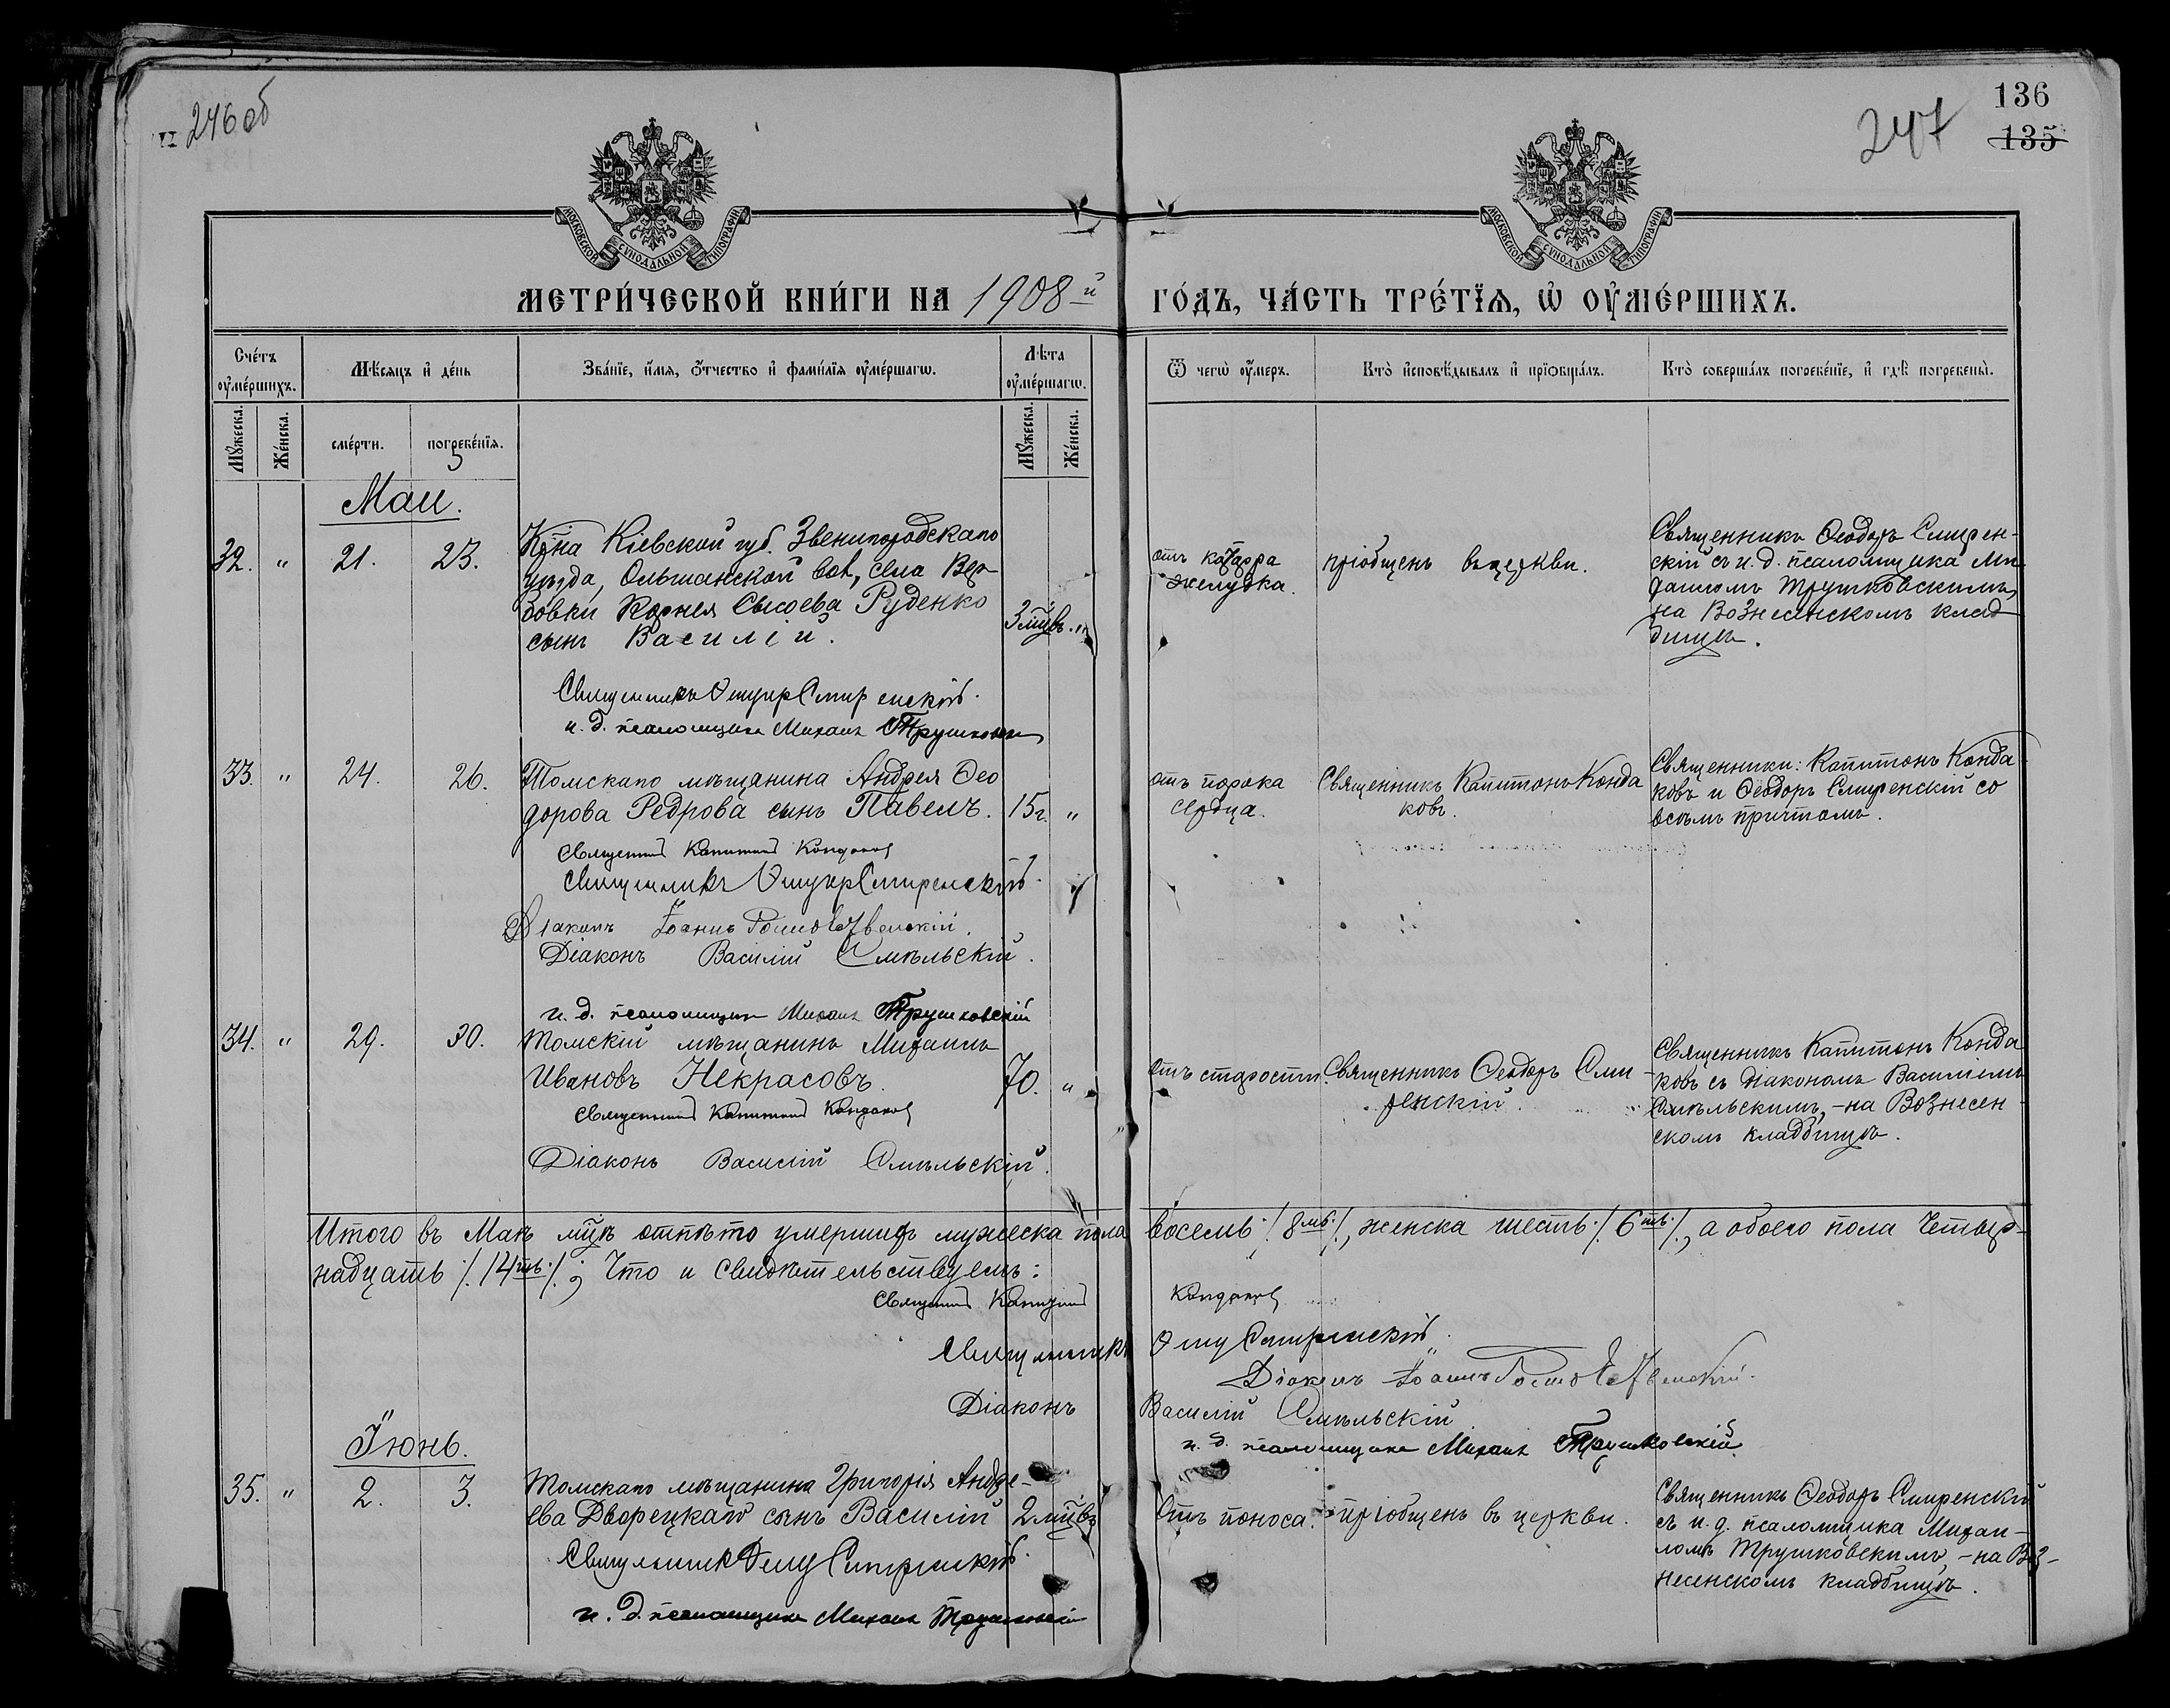 246 об
247
136
135
МОСКОВСКОЙ СѴНОДАЛЬНОЙ ТИПОГРАФІИ
МОСКОВСКОЙ СѴНОДАЛЬНОЙ ТИПОГРАФІИ
МЕТРИ́ЧЕСКОЙ КНИ́ГИ НА 1908й ГО́ДЪ, ЧА́СТЬ ТРЕ́ТЇѦ, Ѡ҆ ОУ҆МЕ́РШИХЪ.
Сче́тъ оу҆ме́ршихъ.
Мѣ́сяцъ и҆ де́нь
Зва́нїе, и҆́мѧ, ѻ҆́тчество и҆ фами́лїѧ оу҆ме́ршагѡ.
Лѣ́та оу҆ме́ршагѡ.
Ѿ чегѡ̀ оу҆́меръ.
Кто̀ и҆сповѣ́дывалъ и҆ прїѡбща́лъ.
Кто̀ соверша́лъ погребе́нїе, и҆ гдѣ̀ погребены̀.
Мꙋ́жеска.
Же́нска.
сме́рти.
погребе́нїѧ.
Мꙋ́жеска.
Же́нска.
Маи.
32. " 21. 23.
Кр̃на Кіевской губ. Звенигородскаго
уѣзда, Ольшанской вол, села Вер-
бовки Корнея Сысоева Руденко
сынъ Василій.
3 мц̃въ. "
отъ катарра
желудка.
пріобщенъ въ церкви.
Священникъ Ѳеодоръ Смирен-
скій съ и. д. псаломщика Ми-
хаиломъ Трушковскимъ,
на Вознесенскомъ клад-
бищѣ.
Священникъ Ѳеодоръ Смиренскій.
и. д. псаломщика Михаилъ Трушковскій
33. " 24. 26.
Томскаго мѣщанина Андрея Ѳео
дорова Редрова сынъ Павелъ.
15 г. "
отъ порока
сердца.
Священникъ Капитонъ Конда
ковъ.
Священники: Капитонъ Конда
ковъ и Ѳеодоръ Смиренскій со
всѣмъ причтомъ.
Священникъ Капитонъ Кондаковъ
Священникъ Ѳеодоръ Смиренскій.
Діаконъ Іоаннъ
Діаконъ Василій Смѣльскій.
и. д. псаломщика Михаилъ Трушковскій
34. " 29. 30.
Томскій мѣщанинъ Михаилъ
Ивановъ Некрасовъ.
70. "
Отъ старости.
Священникъ Ѳеодоръ Сми-
ренскій.
Священникъ Капитонъ Конда
ковъ съ діакономъ Василіемъ
Смѣльскимъ, - на Вознесен-
скомъ кладбищѣ.
Священникъ Капитонъ Кондаковъ
Діаконъ Василій Смѣльскій.
Итого въ Маѣ мц̃ѣ отпѣто умершихъ мужеска пола восемь /8мь/, женска шесть /6ть/, а обоего пола Четыр-
надцать /14ть/; Что и свидѣтельствуемъ:
Священникъ Капитонъ Кондаковъ
Священникъ Ѳеодоръ Смиренскій.
Діаконъ Іоаннъ
Діаконъ Василій Смѣльскій
и. д. псаломщика Михаилъ Трушковскій
Іюнь.
35. " 2. 3.
Томскаго мѣщанина Григорія Андре-
ева Дворецкаго сынъ Василій
2 мц̃въ
Отъ поноса.
пріобщенъ въ церкви.
Священникъ Ѳеодоръ Смиренскій
съ и. д. псаломщика Михаи-
ломъ Трушковскимъ, - на Воз-
несенскомъ кладбищѣ.
Священникъ Ѳеодоръ Смиренскій.
и. д. псаломщика Михаилъ Трушковскій